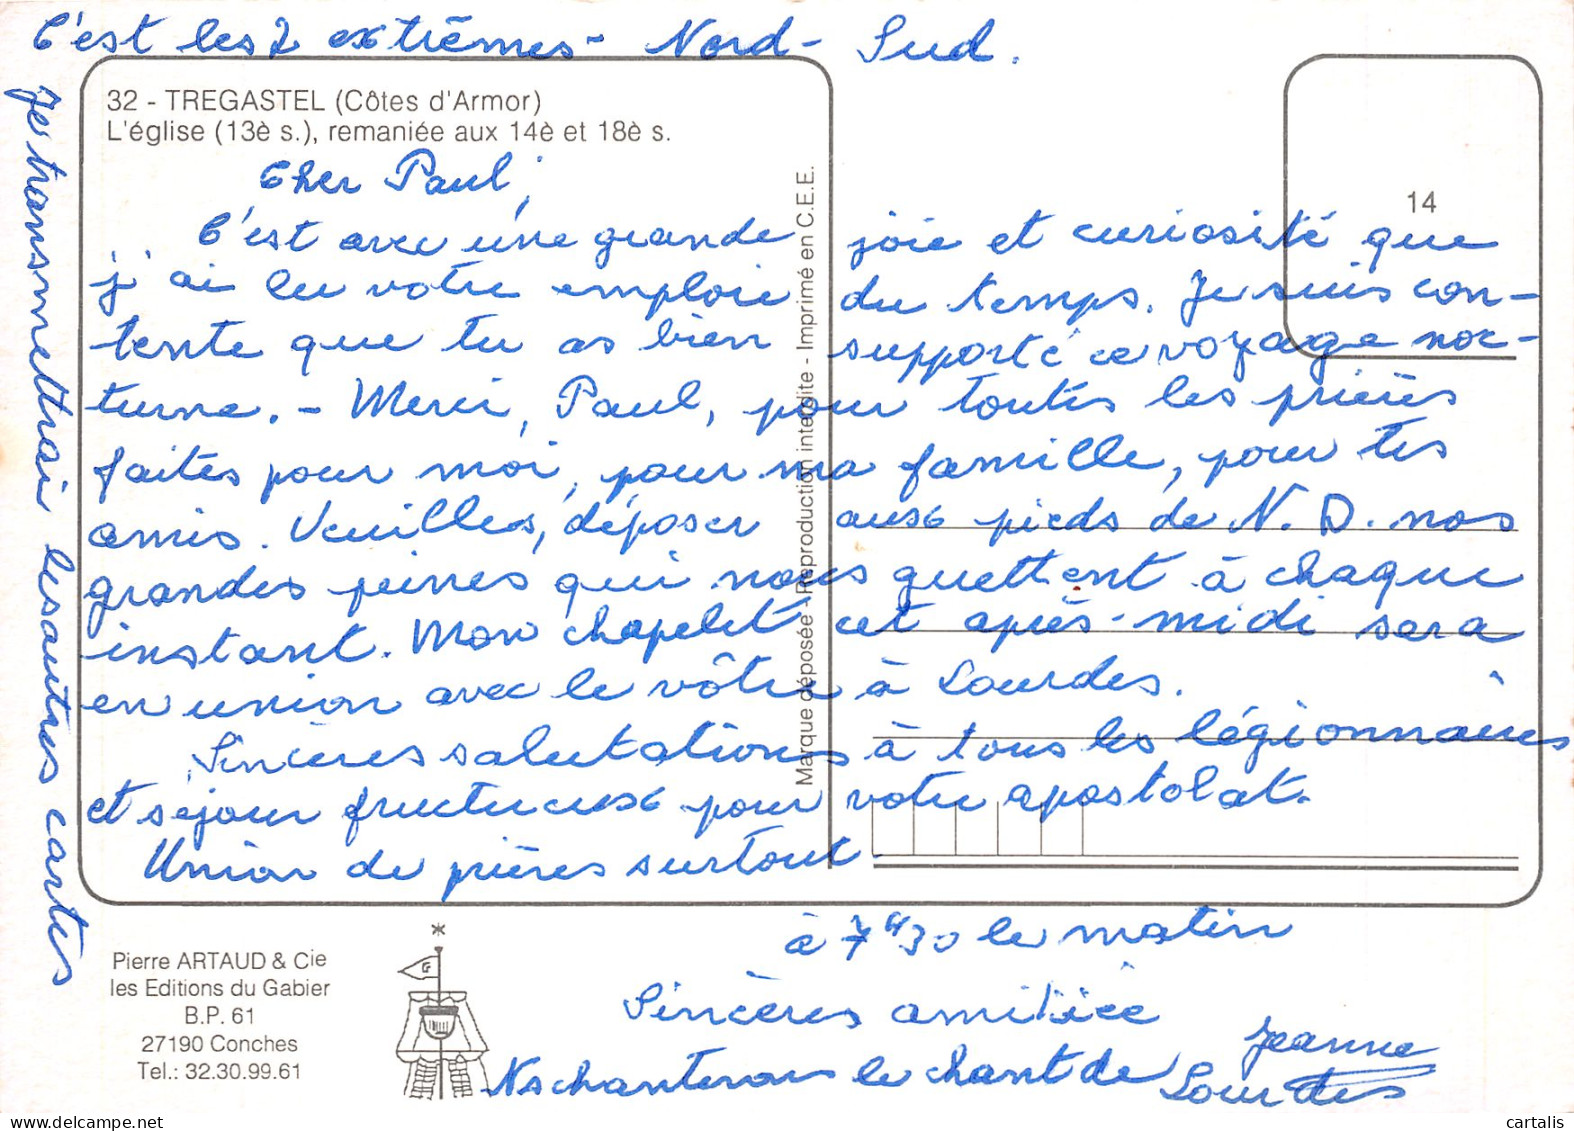 C'est les 2 extrêmes - Nord - Sud.
32 - TREGASTEL (Côtes d'Armor)
L'église (13è s.), remaniée aux 14è et 18è s.
14
Cher Paul,
C'est avec une grande joie et curiosité que
j'ai lu votre emploie du temps. Je suis con-
tente que tu as bien supporté ce voyage noc-
turne. - Merci, Paul, pour toutes les prières
faites pour moi, pour ma famille, pour tes
amis. Veuilles, déposer aux pieds de N.D. nos
grandes peines qui nous guettent à chaque
instant. Mon chapelet cet après-midi sera
en union avec le vôtre à Lourdes.
Sincères salutations à tous les légionnaires
et séjour fructueux pour votre apostolat.
Union de prières surtout
à 7H30 le matin
Sincères amitiée
Jeanne
Ns chanterons le chant de Lourdes
Je transmettrai les autres cartes
Marque déposée - Reproduction interdite - Imprimé en C.E.E.
Pierre ARTAUD & Cie
les Editions du Gabier
B.P. 61
27190 Conches
Tel.: 32.30.99.61
G
cartalis
delcampe.net